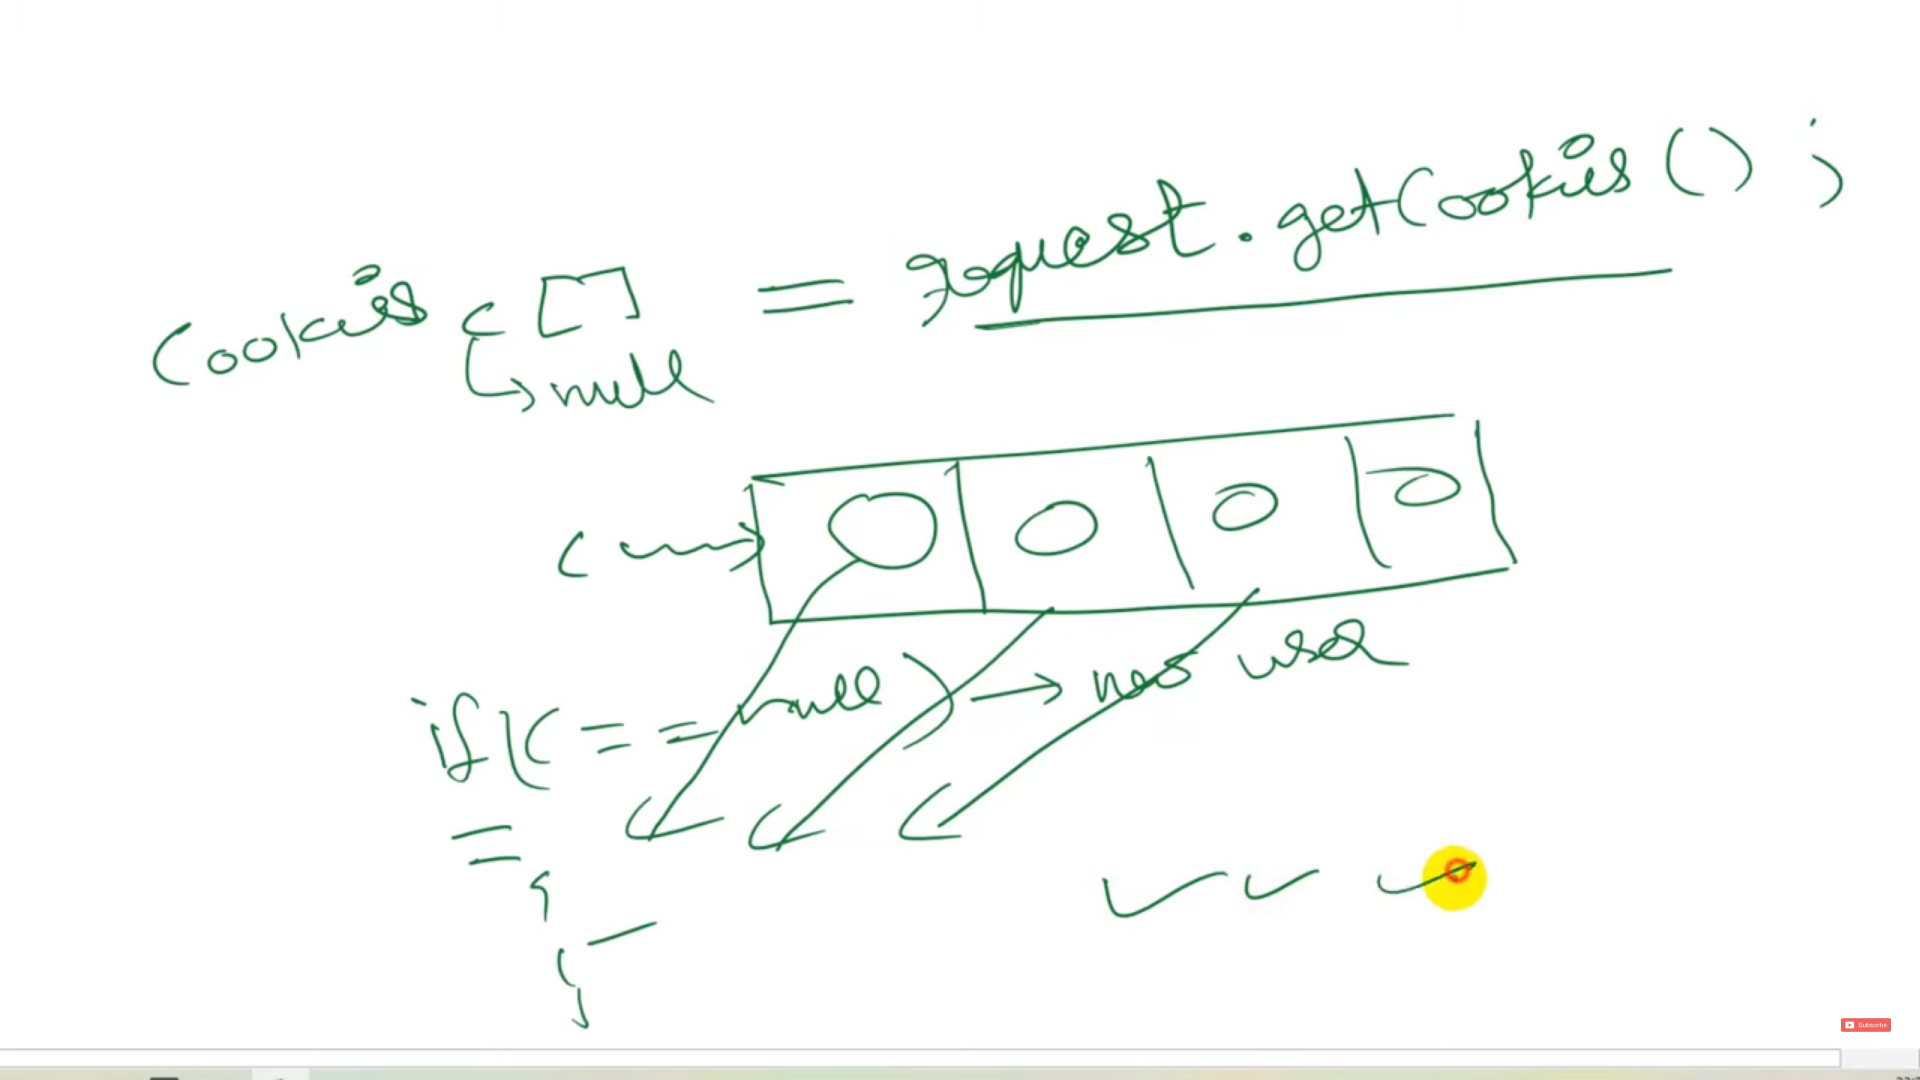 Cookies c [] = request.getCookies();
null
c
if(c == null) → new user
=
Subscribe